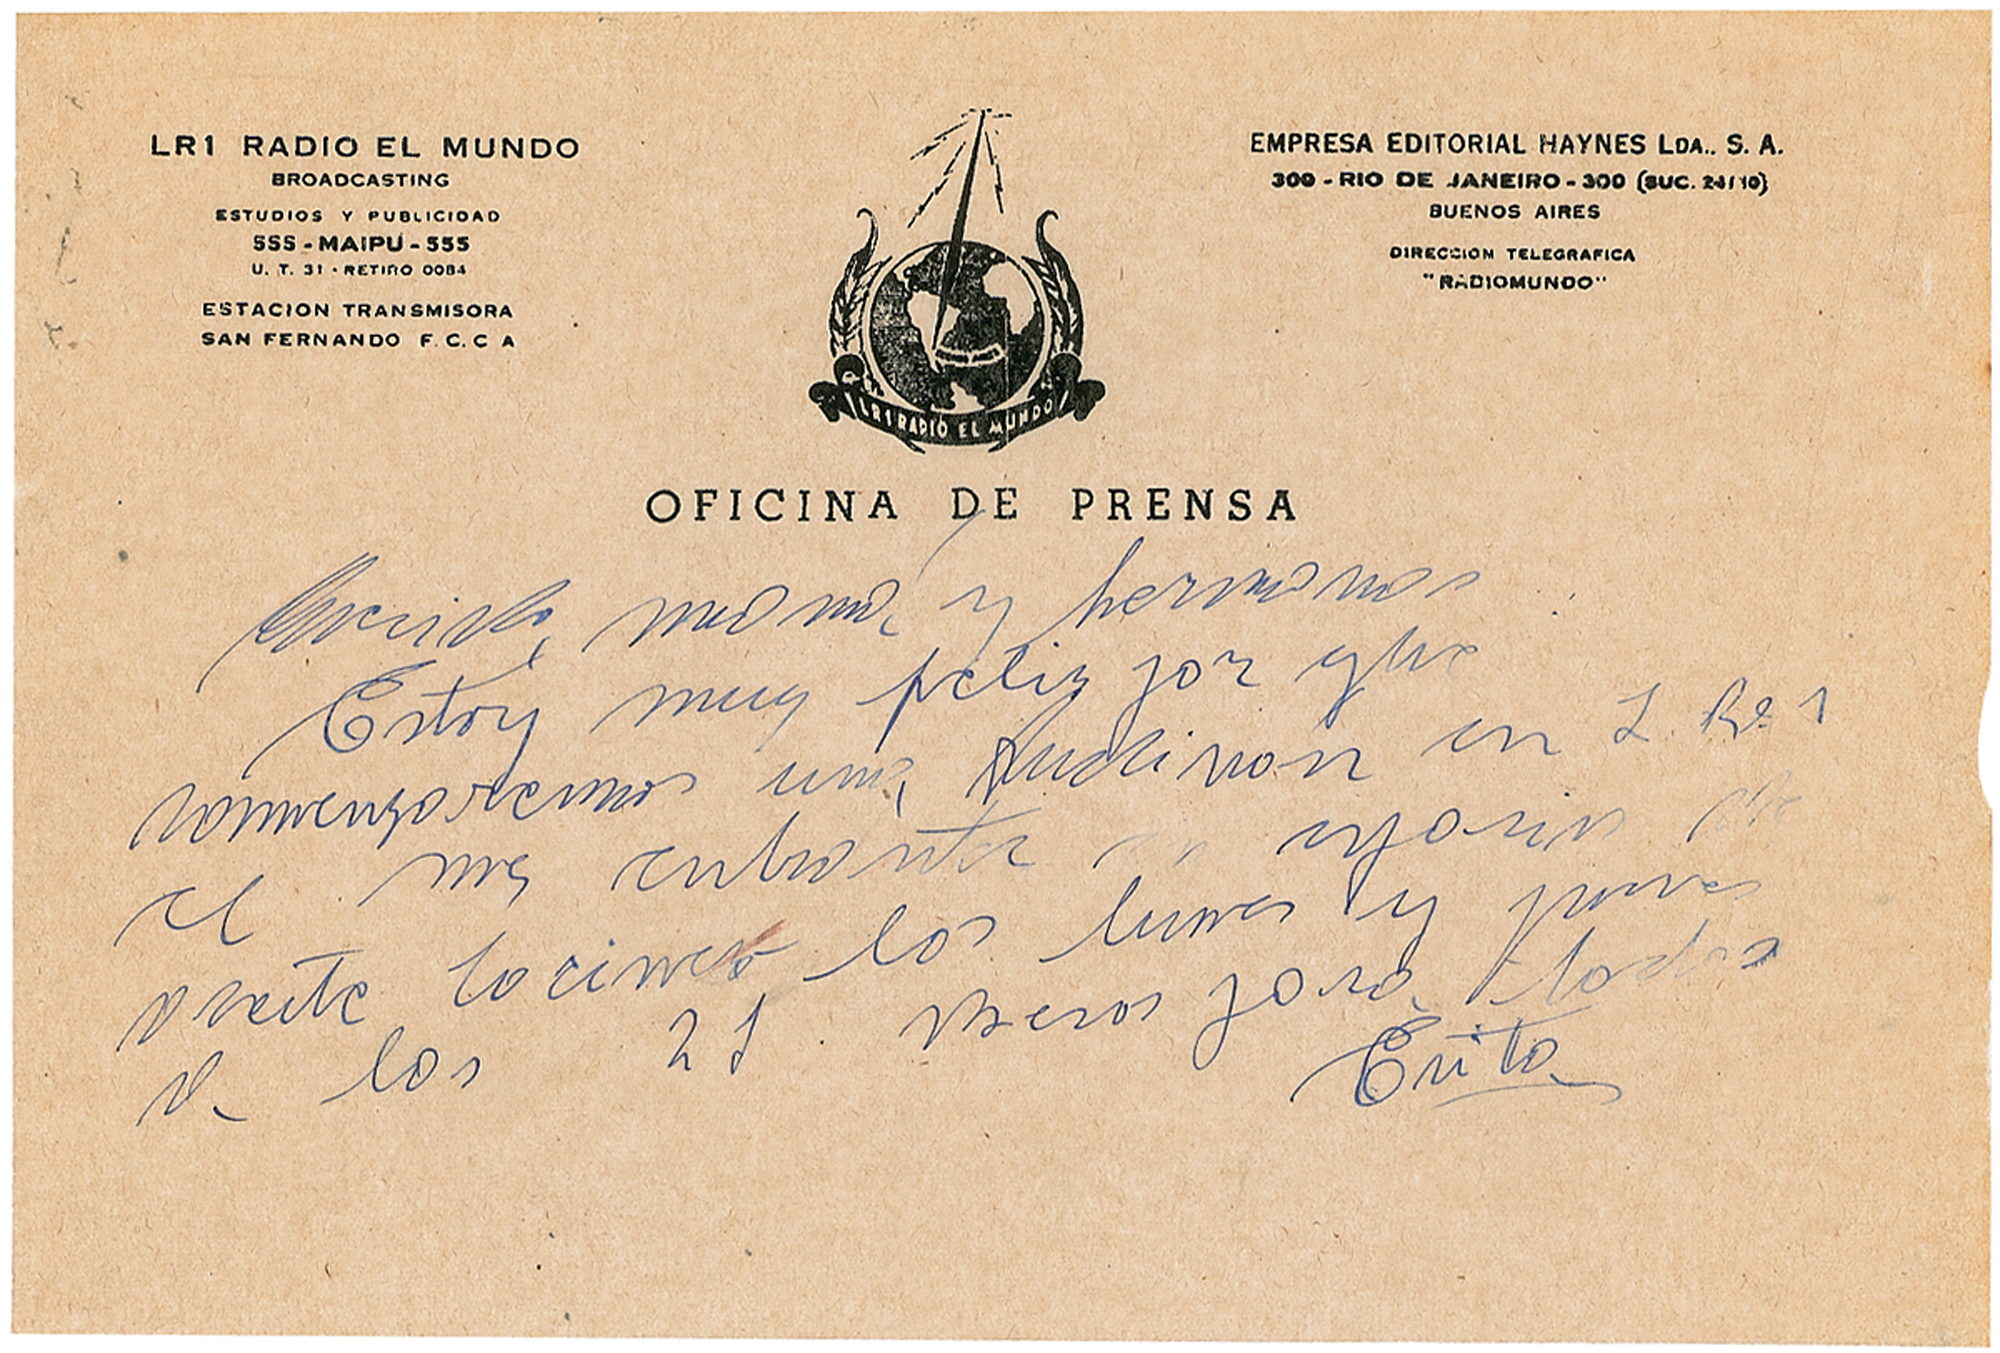 LR1 RADIO EL MUNDO
BROADCASTING
ESTUDIOS Y PUBLICIDAD
555 - MAIPU - 555
U. T. 31 - RETIRO 0084
ESTACION TRANSMISORA
SAN FERNANDO F. C. C A
LR1 RADIO EL MUNDO
EMPRESA EDITORIAL HAYNES LDA.. S. A.
300 - RIO DE JANEIRO - 300 (SUC. 24/10)
BUENOS AIRES
DIRECCION TELEGRAFICA
"RADIOMUNDO"
OFICINA DE PRENSA
Querida mama y hermanas
Estoy muy feliz por que
comenzaremos una audicion en L. R. 1
el mes entrante
aceite los lunes y jueves
a las 21. Besos para todos
Evita